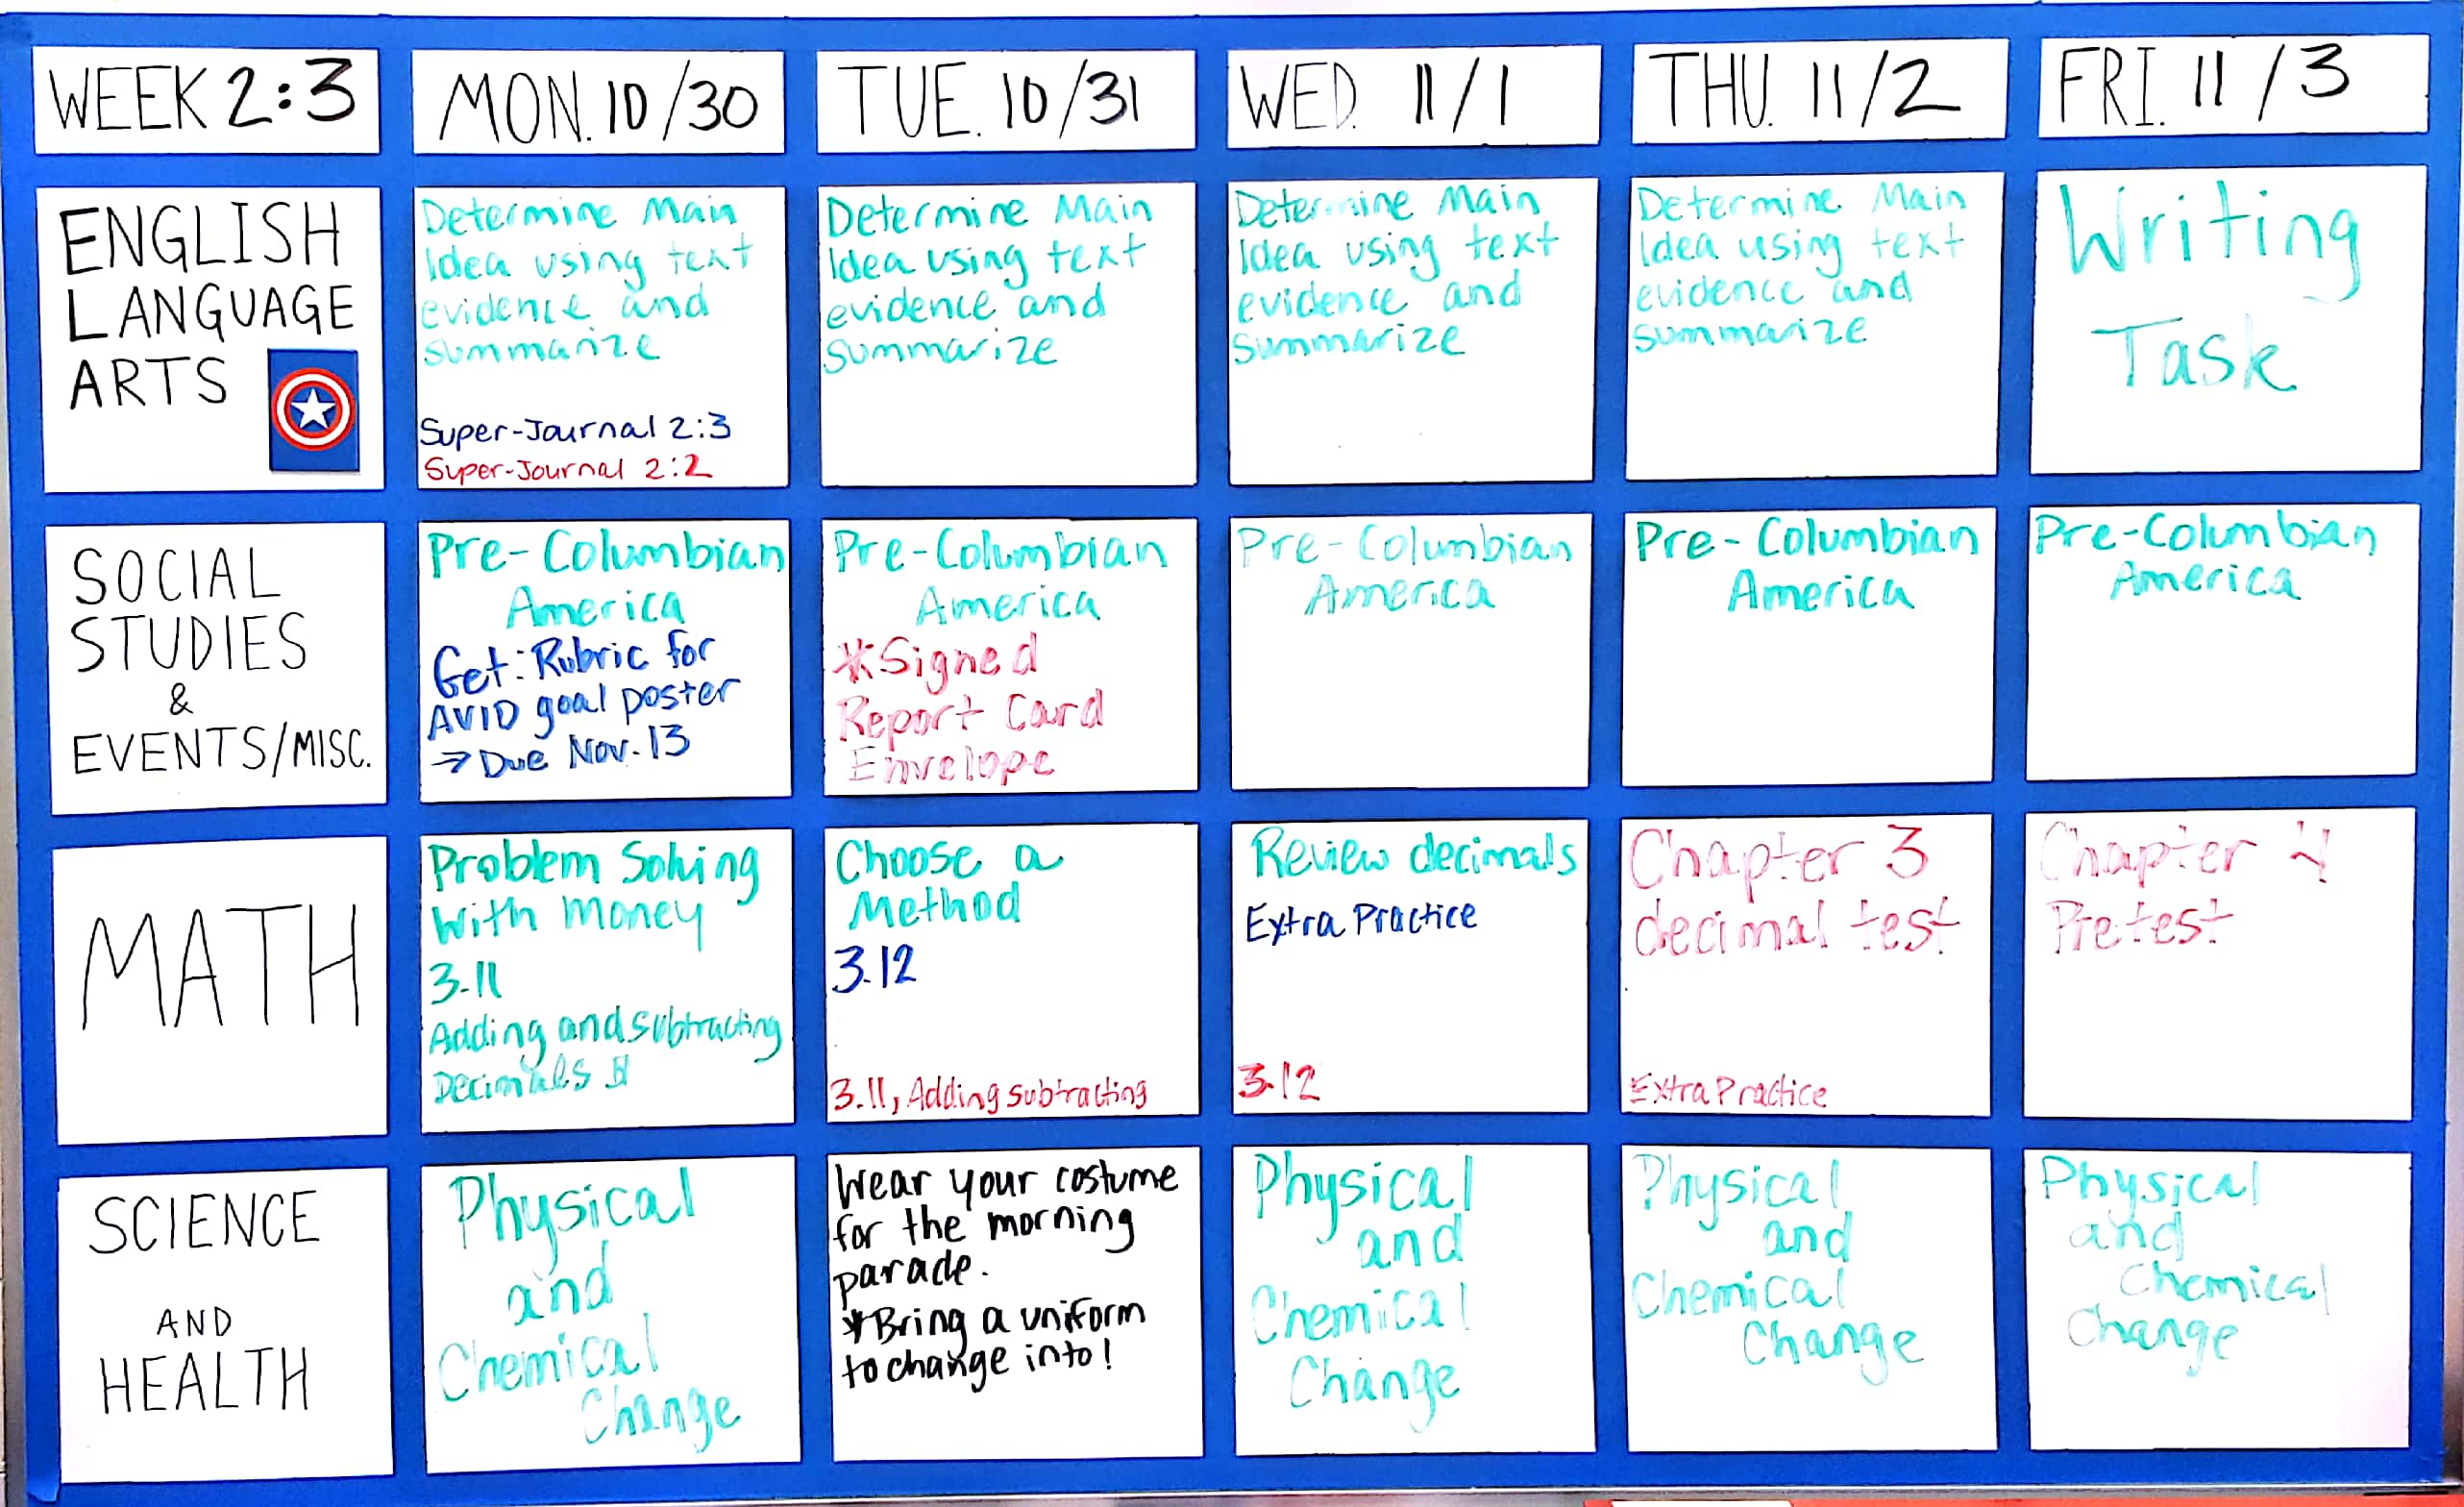 WEEK 2:3
MON. 10/30
TUE. 10/31
WED. 11/1
THU. 11/2
FRI. 11/3
ENGLISH
LANGUAGE
ARTS
Determine Main
Idea using text
evidence and
summarize
Super-Journal 2:3
Super-Journal 2:2
Determine Main
Idea using text
evidence and
summarize
Determine Main
Idea using text
evidence and
summarize
Determine Main
Idea using text
evidence and
summarize
Writing
Task
SOCIAL
STUDIES
&
EVENTS/MISC.
Pre-Columbian
America
Get: Rubric for
AVID goal poster
→ Due Nov. 13
Pre-Columbian
America
*Signed
Report Card
Envelope
Pre-Columbian
America
Pre-Columbian
America
Pre-Columbian
America
MATH
Problem Solving
With money
3.11
Adding and subtracting
Decimals
Choose a
Method
3.12
3.11, Adding subtracting
Review decimals
Extra Practice
3.12
Chapter 3
decimal test
Extra Practice
Chapter 4
Pretest
SCIENCE
AND
HEALTH
Physical
and
Chemical
Change
Wear your costume
for the morning
parade.
*Bring a uniform
to change into!
Physical
and
Chemical
Change
Physical
and
Chemical
Change
Physical
and
Chemical
Change